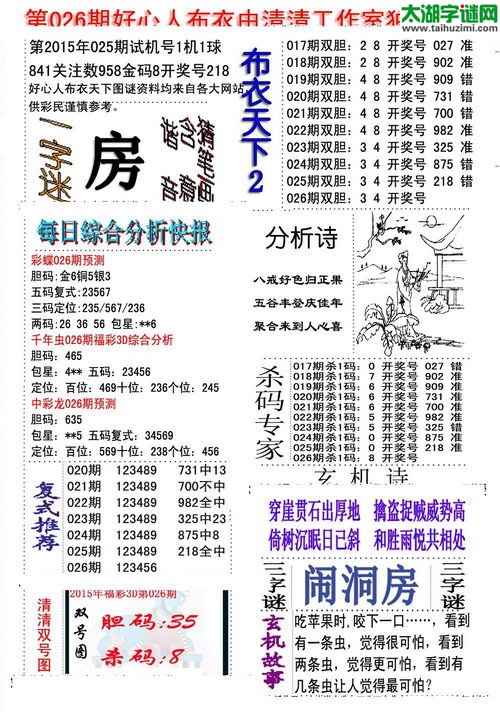 太湖字谜网
www.taihuzimi.com
第026期好心人布衣虫清清工作室
第2015年025期试机号1机1球
841关注数958金码8开奖号218
好心人布衣天下图谜资料均来自各大网站,
供彩民谨慎参考。
一字迷
房
布衣天下2
017期双胆: 2 8 开奖号 027 准
018期双胆: 2 8 开奖号 902 准
019期双胆: 4 8 开奖号 909 错
020期双胆: 4 8 开奖号 731 错
021期双胆: 4 8 开奖号 700 错
022期双胆: 4 8 开奖号 982 准
023期双胆: 3 4 开奖号 325 准
024期双胆: 3 4 开奖号 875 错
025期双胆: 3 4 开奖号 218 错
026期双胆: 3 4 开奖号
每日综合分析快报
彩蝶026期预测
胆码:金6铜5银3
五码复式:23567
三码定位:235/567/236
两码: 26 36 56 包星:**6
千年虫026期福彩3D综合分析
胆码: 465
包星: 4** 五码: 23456
定位: 百位: 469十位: 236个位: 245
中彩龙026期预测
胆码: 635
包星: **5 五码: 34569
定位: 百位: 569十位: 238个位: 456
分析诗
八戒好色归正果
五谷丰登庆佳年
聚合来到人心喜
杀码专家
017期杀1码: 0 开奖号 027 错
018期杀1码: 7 开奖号 902 准
019期杀1码: 6 开奖号 909 准
020期杀1码: 6 开奖号 731 准
021期杀1码: 6 开奖号 700 准
022期杀1码: 5 开奖号 982 准
023期杀1码: 5 开奖号 325 错
024期杀1码: 0 开奖号 875 准
025期杀1码: 0 开奖号 218 准
026期杀1码: 8 开奖号
复式推荐
020期 123489 731中13
021期 123489 700不中
022期 123489 982全中
023期 123489 325中23
024期 123489 875中8
025期 123489 218全中
026期 123456
玄机诗
穿崖贯石出厚地 擒盗捉贼威势高
倚树沉眠日已斜 和胜雨悦共相处
清清双号图
2015年福彩3D第026期
双号图
胆码:35
杀码:8
三字谜
闹洞房
三字谜
玄机故事
吃苹果时,咬下一口……,看到
有一条虫，觉得很可怕，看到
两条虫，觉得更可怕，看到有
几条虫让人觉得最可怕？